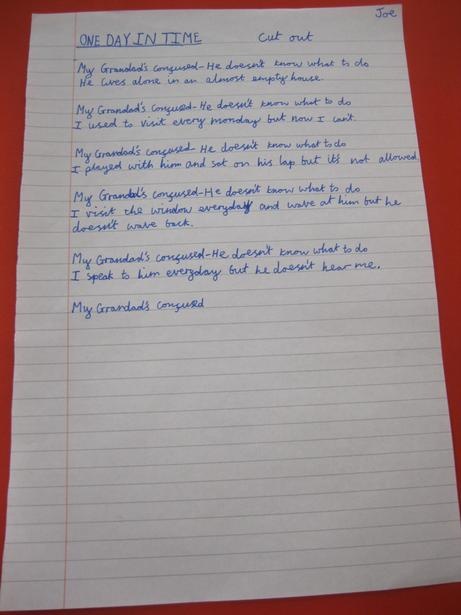 Joe
ONE DAY IN TIME Cut out
My Grandad's confused - He doesn't know what to do
He lives alone in an almost empty house.
My Grandad's confused - He doesn't know what to do
I used to visit every monday but now I can't.
My Grandad's confused - He doesn't know what to do
I played with him and sat on his lap but it's not allowed
My Grandad's confused - He doesn't know what to do
I visit the window everyday and wave at him but he
doesn't wave back.
My Grandad's confused - He doesn't know what to do
I speak to him everyday but he doesn't hear me.
My Grandad's confused